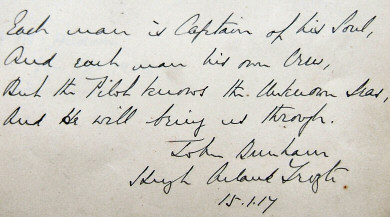 Each man is Captain of his Soul,
And each man his own Crew,
But the Pilot knows the Unknown Seas,
And He will bring us through.
John Dunham
Hugh
15.1.17